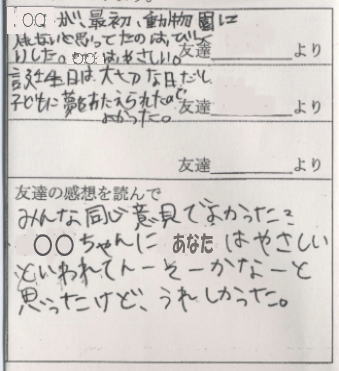 ○○が、最初、動物園に
せないと思ってたのは、びっく
りした。○○は、やさしい。
友達 より
誕生日は大切な日だし、
子どもに夢をあたえられたので
よかった。
友達 より
友達 より
友達の感想を読んで
みんな同じ意見でよかった。
○○ちゃんに あなた はやさしい
といわれてんーそーかなーと
思ったけど、うれしかった。